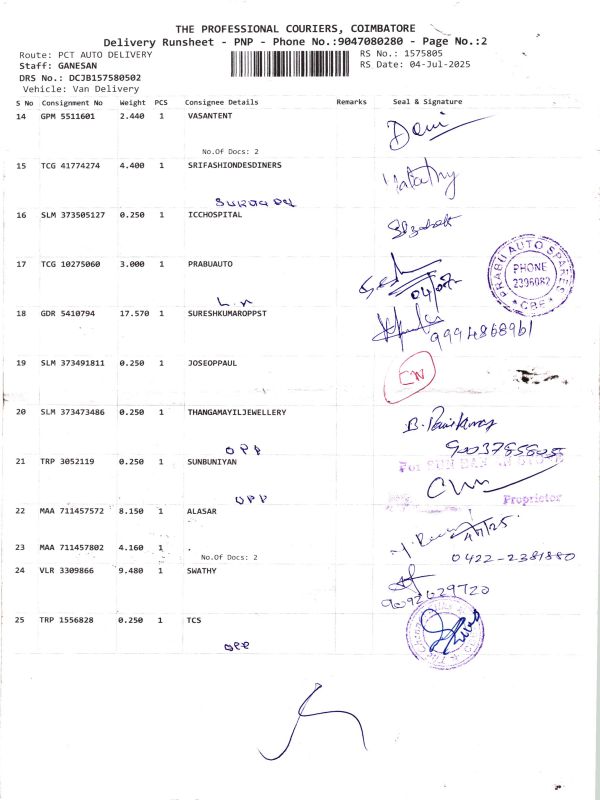 THE PROFESSIONAL COURIERS, COIMBATORE
Delivery Runsheet - PNP - Phone No.:9047080280 - Page No.:2
Route: PCT AUTO DELIVERY
RS No.: 1575805
Staff: GANESAN
RS Date: 04-Jul-2025
DRS No.: DCJB157580502
Vehicle: Van Delivery
S No Consignment No Weight PCS Consignee Details Remarks Seal & Signature
14 GPM 5511601 2.440 1 VASANTENT
No.Of Docs: 2
15 TCG 41774274 4.400 1 SRIFASHIONDESDINERS
16 SLM 373505127 0.250 1 ICCHOSPITAL
17 TCG 10275060 3.000 1 PRABUAUTO
PRABU AUTO SPARES
PHONE
2396082
* CBE *
04/07
18 GDR 5410794 17.570 1 SURESHKUMAROPPST
9994868961
19 SLM 373491811 0.250 1 JOSEOPPAUL
20 SLM 373473486 0.250 1 THANGAMAYILJEWELLERY
9003785805
OPP
21 TRP 3052119 0.250 1 SUNBUNIYAN
For SUN
Proprietor
OPP
22 MAA 711457572 8.150 1 ALASAR
23 MAA 711457802 4.160 1 .
No.Of Docs: 2
0422-2381880
24 VLR 3309866 9.480 1 SWATHY
9092629720
25 TRP 1556828 0.250 1 TCS
OPP